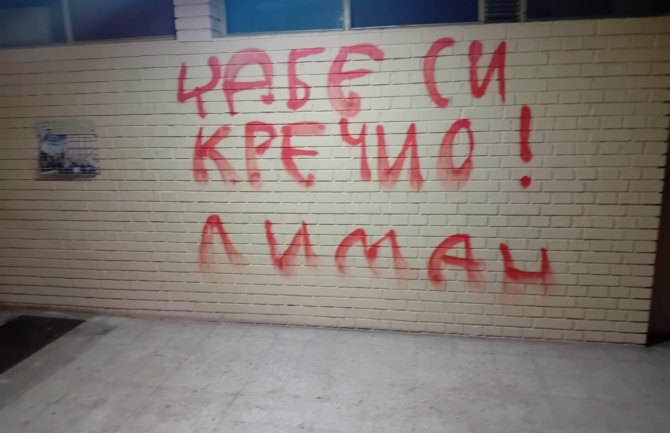 ЏАБЕ СИ
КРЕЧИО!
ЛИМАН